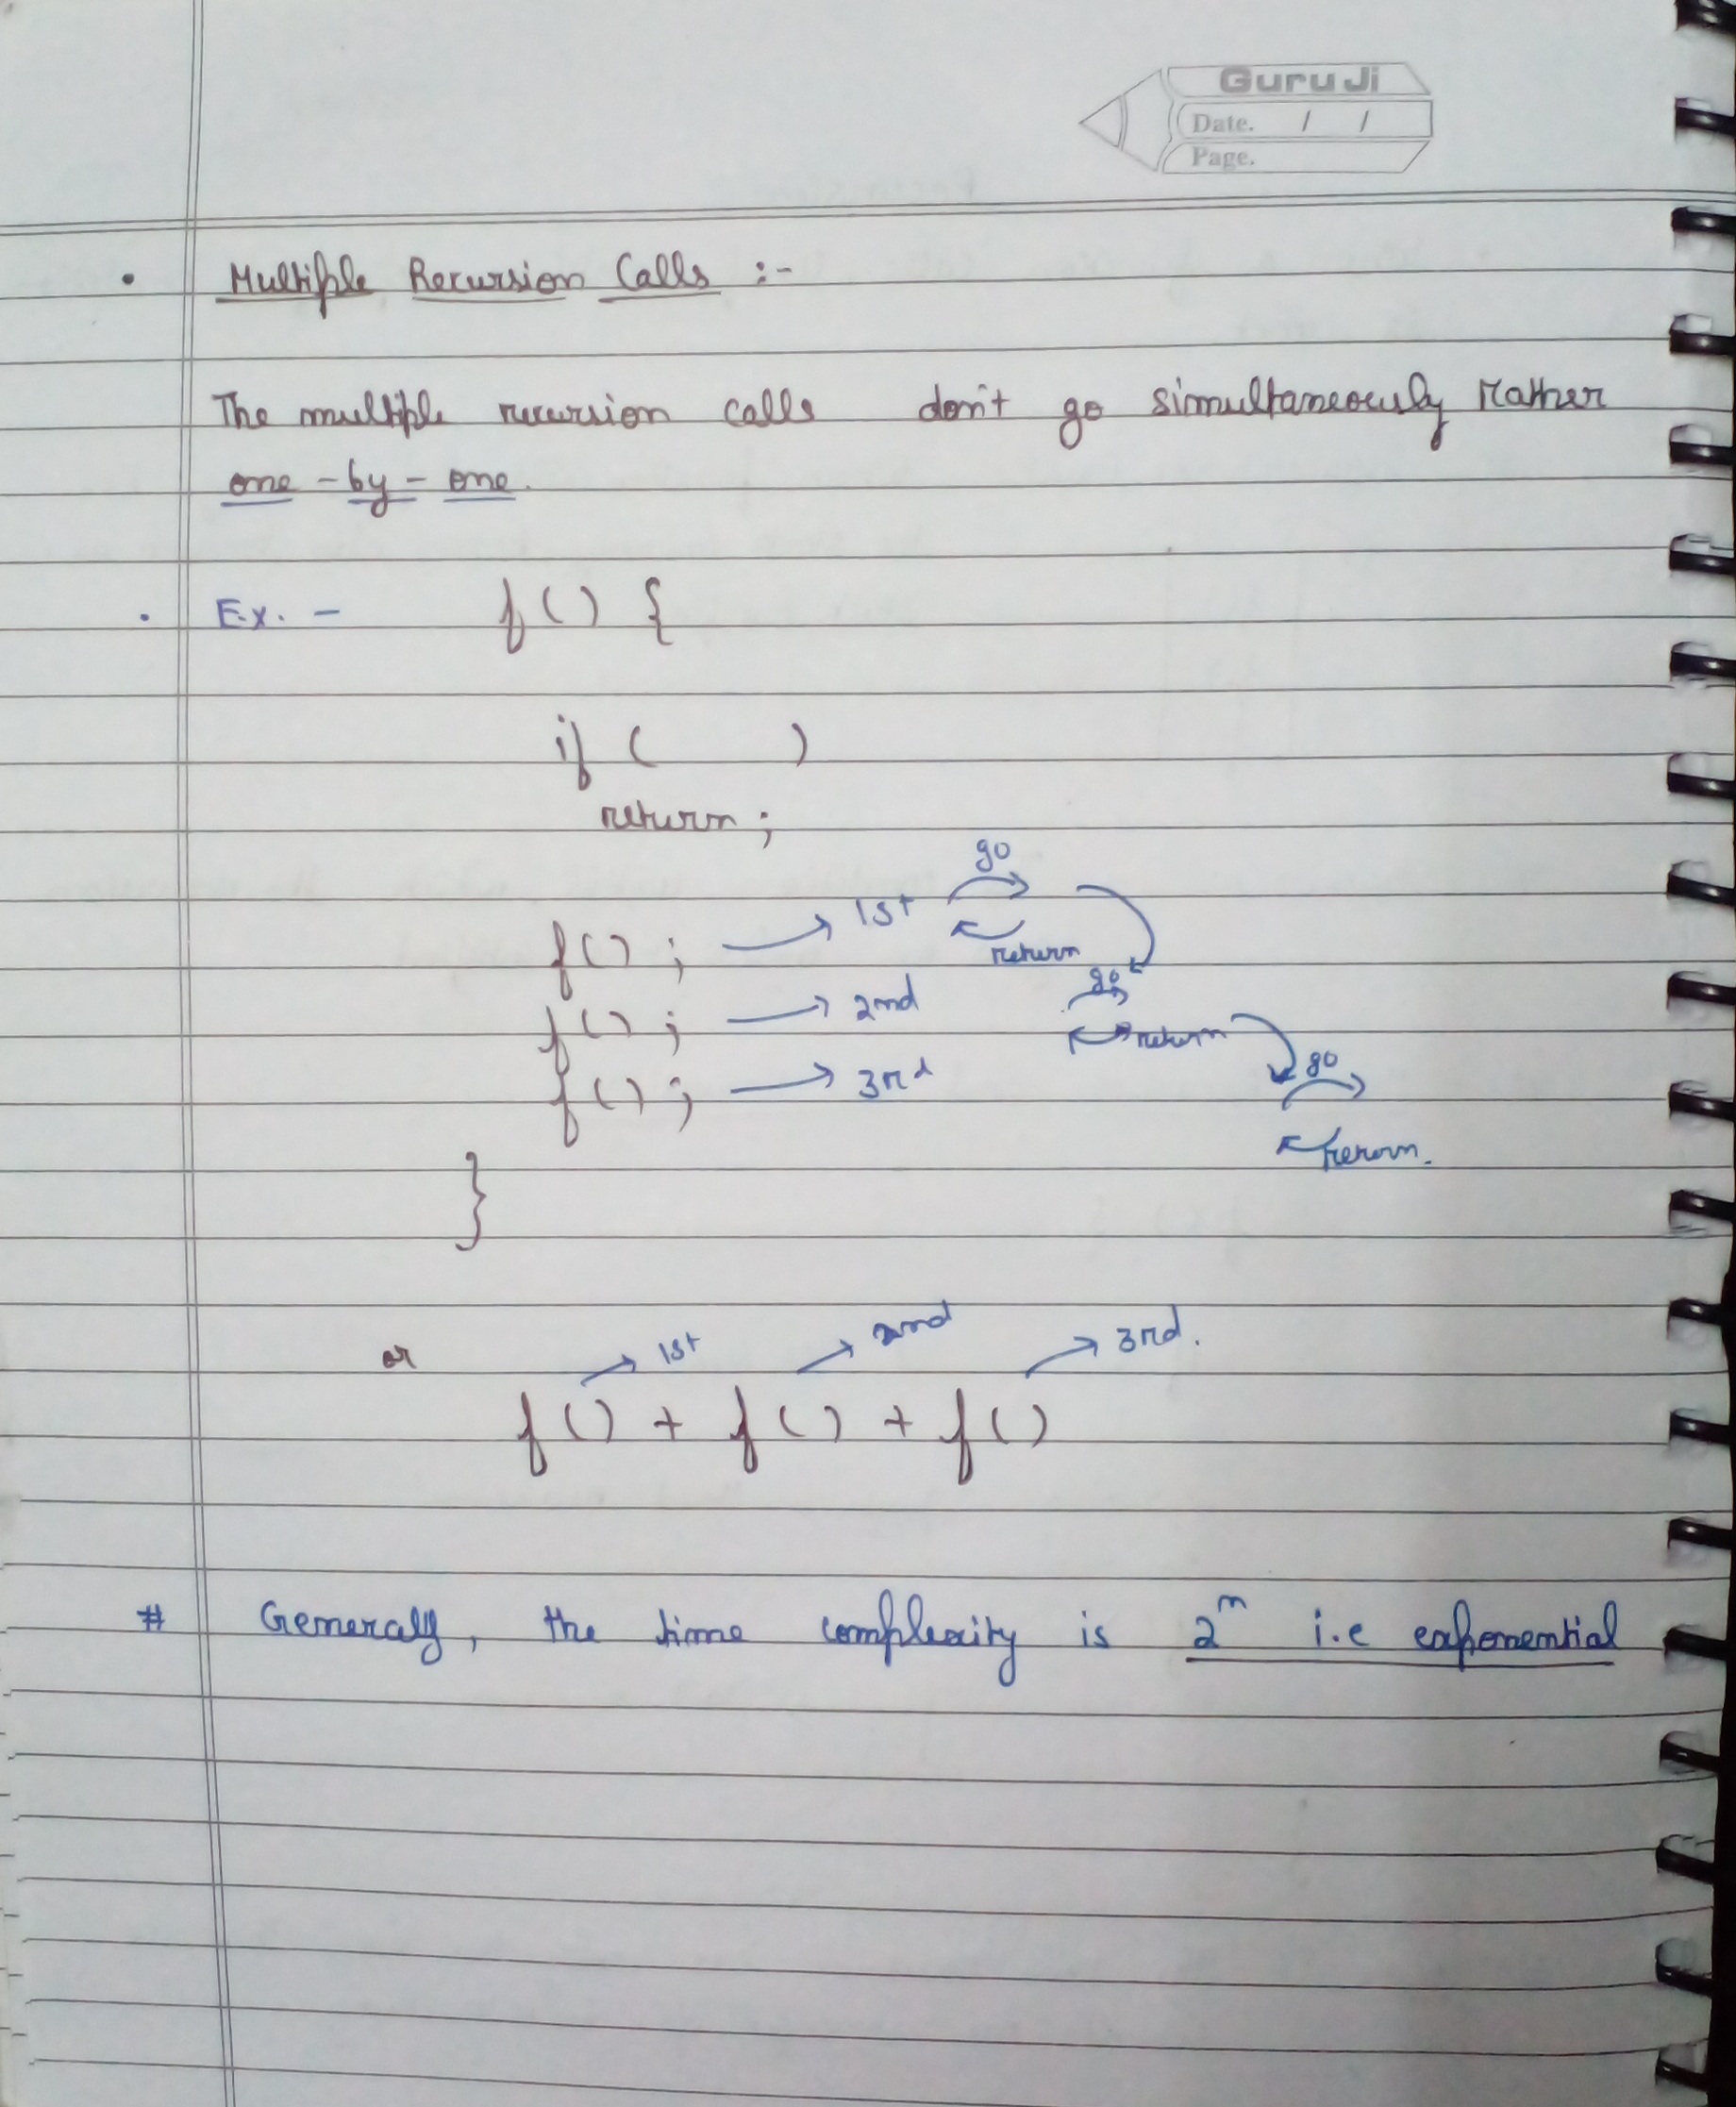 Guru Ji
Date. / /
Page.
• Multiple Recursion Calls :-
The multiple recursion calls don't go simultaneously rather
one - by - one.
• Ex. - f ( ) {
if ( )
return ;
go
f ( ) ; → 1st
return
go
f ( ) ; → 2nd
return
go
f ( ) ; → 3rd
return.
}
or → 1st → 2nd → 3rd.
f ( ) + f ( ) + f ( )
# Generally, the time complexity is 2^n i.e exponential